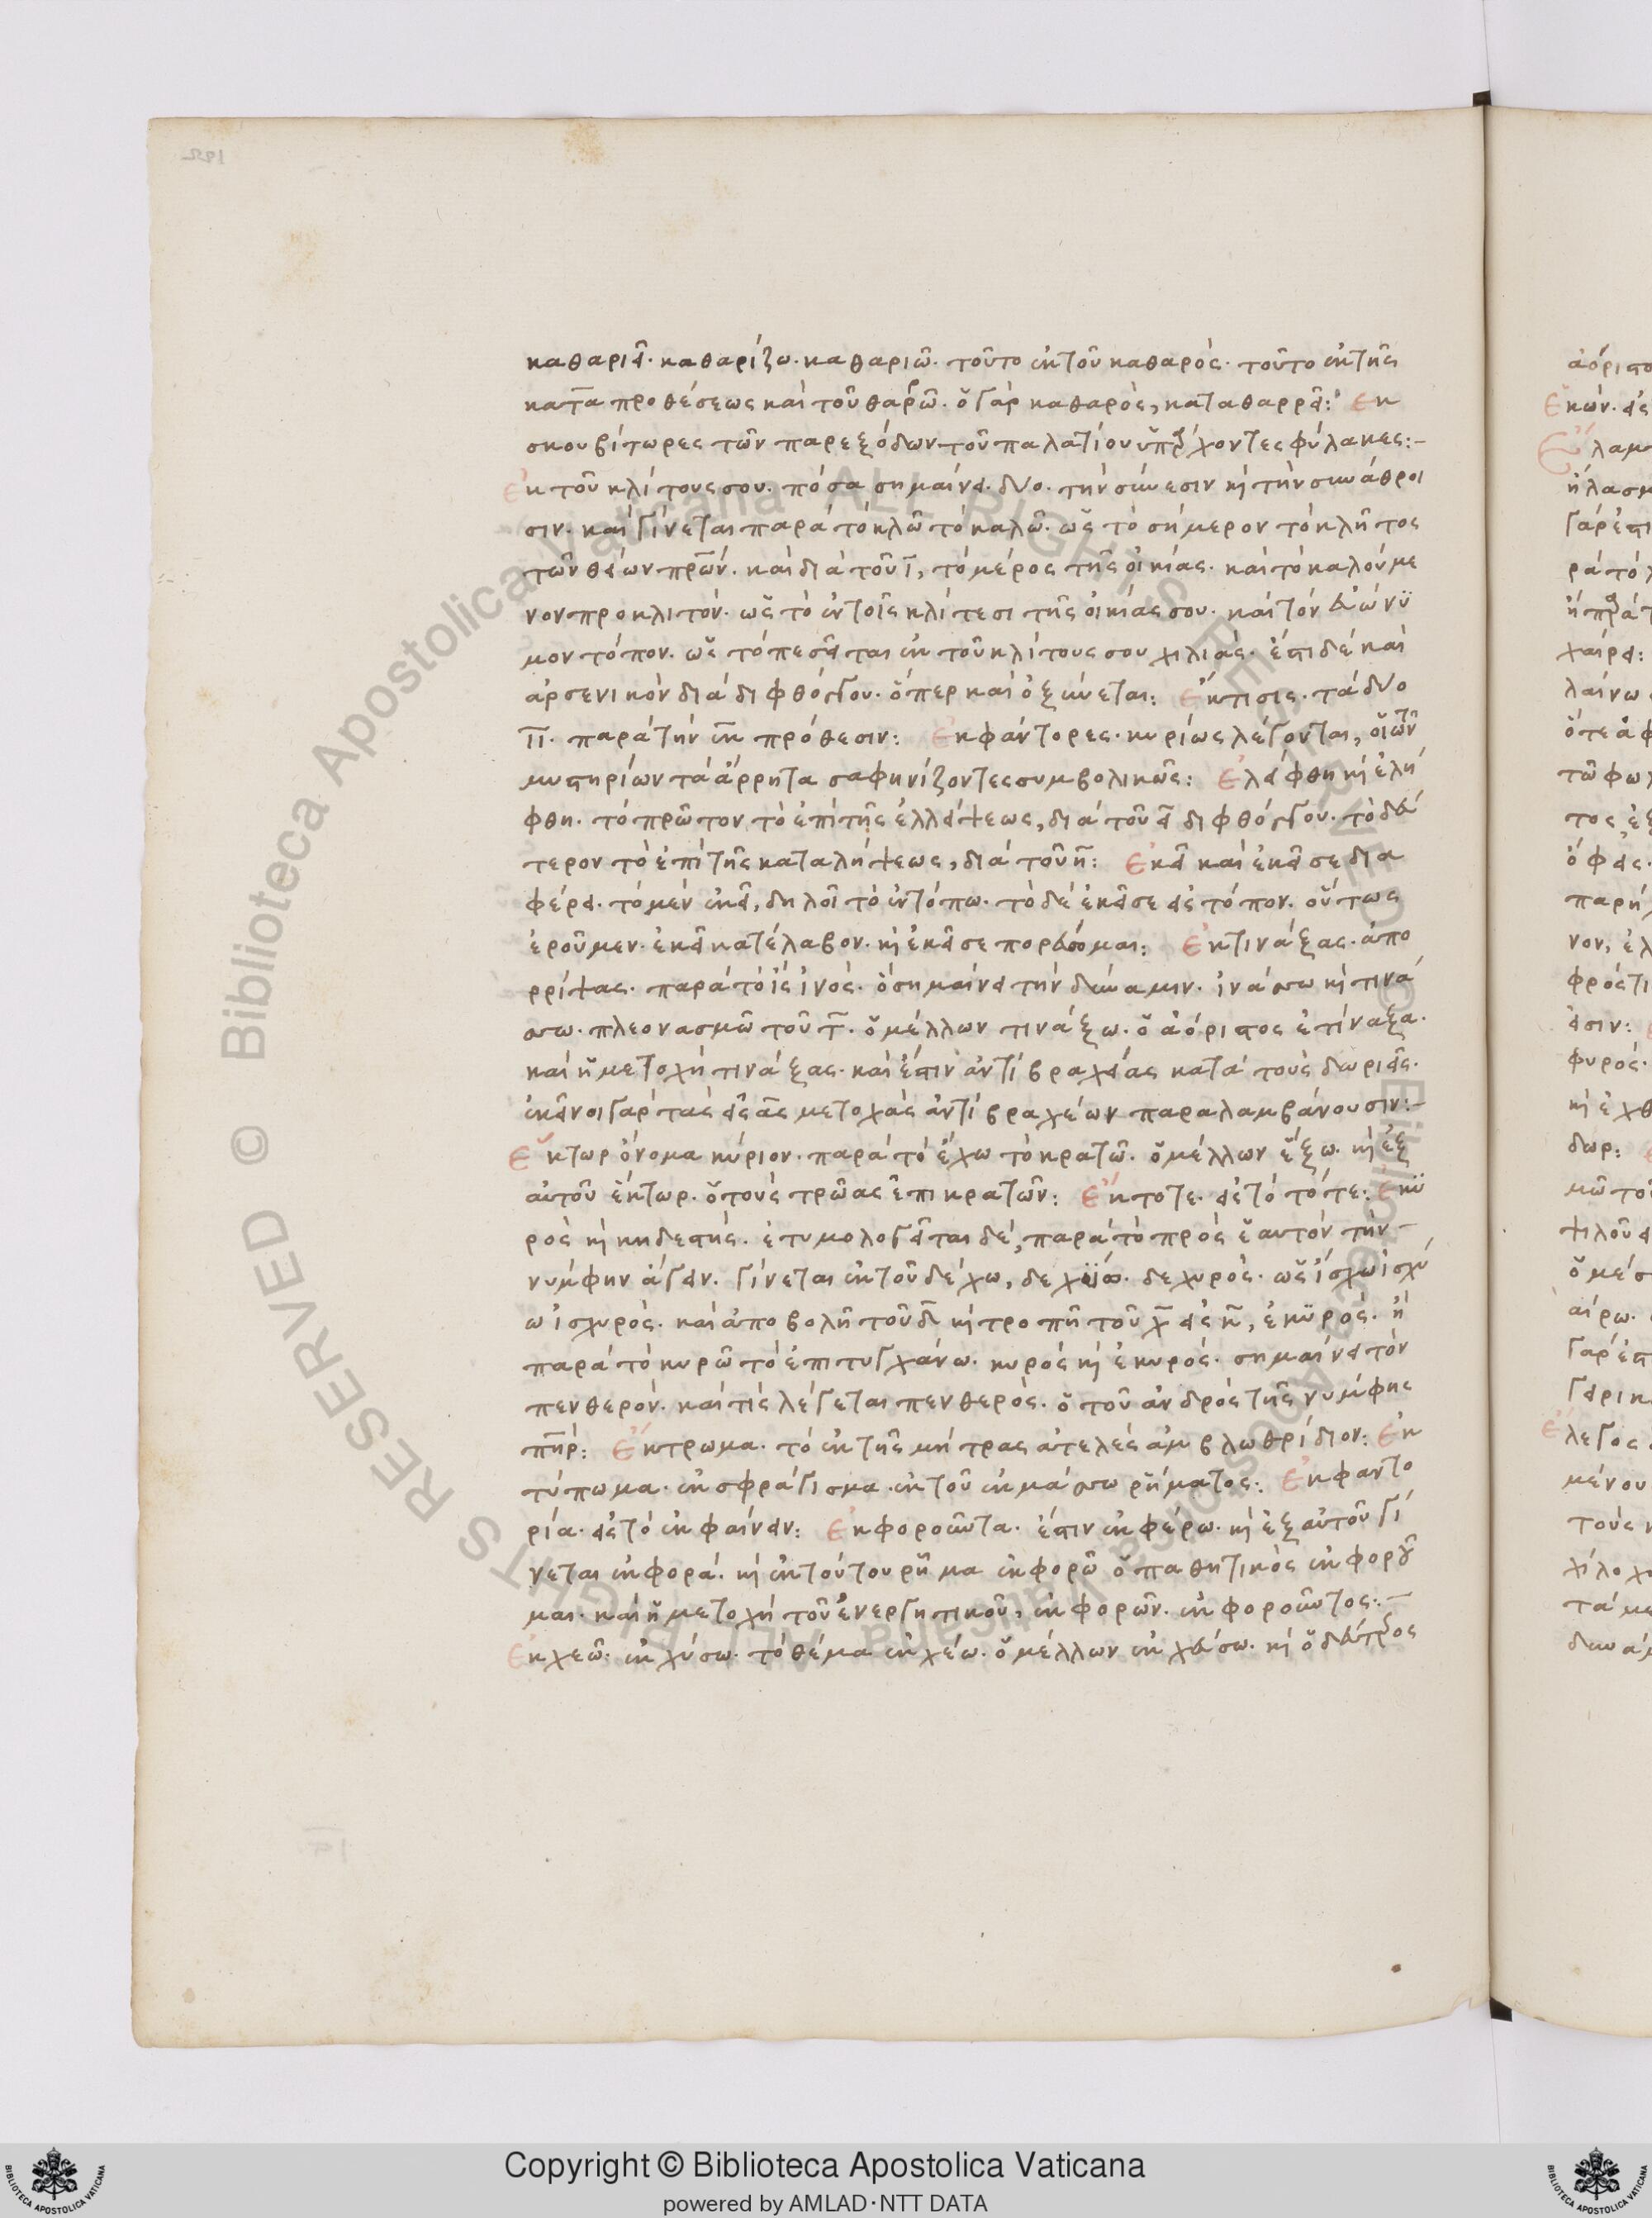 καθαριεῖ· καθαρίζω· καθαριῶ· τοῦτο ἐκ τοῦ καθαρός· τοῦτο ἐκ τῆς
κατὰ προθέσεως καὶ τοῦ θαρῶ· ὁ γὰρ καθαρὸς, καταθαρρεῖ: Εκ
σκουβίτωρες τῶν παρεξόδων τοῦ παλατίου ὑπάρχοντες φύλακες:–
Ἐκ τοῦ κλίτους σου· πόσα σημαίνει· δύο· τὴν σύνεσιν κὶ τὴν συνάθροι
σιν· καὶ γίνεται παρὰ τὸ κλῶ τὸ καλῶ· ὡς τὸ σήμερον τὸ κλῆτος
τῶν θείων πρων· καὶ διὰ τοῦ ῑ, τὸ μέρος τῆς οἰκίας· καὶ τὸ καλούμε
νον προκλιτόν· ὡς τὸ ἐν τοῖς κλίτεσι τῆς οἰκίας σου· καὶ τὸν εὐώνϋ
μον τόπον· ὡς τὸ πεσεῖται ἐκ τοῦ κλίτους σου χιλιάς· ἔστι δὲ καὶ
ἀρσενικὸν διὰ διφθόγγου· ὅπερ καὶ ὀξύνεται: Ἔκτισις· τὰ δύο
ῑῑ· παρὰ τὴν ἐκ πρόθεσιν: Ἐκφάντορες· κυρίως λέγονται, οἱ τῶν
μυστηρίων τὰ ἄρρητα σαφηνίζοντες συμβολικῶς: Ἐλείφθη κὶ ἐλή
φθη· τὸ πρῶτον τὸ ἐπὶ τῆς ἐλλείψεως, διὰ τοῦ ει διφθόγγου· τὸ δεύ
τερον τὸ ἐπὶ τῆς καταλήψεως, διὰ τοῦ η̄: Ἐκεῖ καὶ ἐκεῖσε δια
φέρει· τὸ μὲν ἐκεῖ, δηλοῖ τὸ ἐν τόπω· τὸ δὲ ἐκεῖσε εἰς τόπον· οὕτως
ἐροῦμεν· ἐκεῖ κατέλαβον· κὶ ἐκεῖσε πορεύσομαι: Ἐκτινάξας· ἀπο
ρρίψας· παρὰ τὸ ἲς ἰνός· ὃ σημαίνει τὴν δύναμιν· ἰνάσσω κὶ τινά
σσω· πλεονασμῶ τοῦ τ̄· ὁ μέλλων τινάξω· ὁ ἀόριστος ἐτίναξα·
καὶ ἡ μετοχὴ τινάξας· καὶ ἔστιν ἀντὶ βραχείας κατὰ τοὺς δωριεῖς·
ἐκεῖνοι γὰρ τὰς εἰς ας μετοχὰς ἀντὶ βραχέων παραλαμβάνουσιν:–
Ἕκτωρ ὄνομα κύριον· παρὰ τὸ ἔχω τὸ κρατῶ· ὁ μέλλων ἕξω· κὶ ἐξ
αὐτοῦ ἕκτωρ· ὁ τοὺς τρῶας ἐπικρατῶν: Ἔκτοτε· εἰς τὸ τότε: Ἑκϋ
ρὸς κὶ κηδεστής· ἐτυμολογεῖται δὲ, παρὰ τὸ πρὸς ἑαυτὸν τὴν –
νύμφην ἄγειν· γίνεται ἐκ τοῦ δέχω, δεχύω· δεχυρὸς· ὡς ἰσχύω ἰσχύ
ω ἰσχυρὸς· καὶ ἀποβολῆ τοῦ δ̄ κὶ τροπῆ τοῦ χ̄ εἰς κ̄, ἑκϋρός· ἢ
παρὰ τὸ κυρῶ τὸ ἐπιτυγχάνω· κυρὸς κὶ ἑκυρός· σημαίνει τὸν
πενθερόν· καὶ τίς λέγεται πενθερὸς· ὁ τοῦ ἀνδρὸς τῆς νύμφης
πηρ: Ἔκτρωμα· τὸ ἐκ τῆς μήτρας ἀτελὲς ἀμβλωθρίδιον: Ἐκ
τύπωμα· ἐκσφράγισμα· ἐκ τοῦ ἐκμάσσω ρήματος: Ἐκφαντο
ρία· εἰς τὸ ἐκφαίνειν: Ἐκφοροῦντα· ἔστιν ἐκφέρω· κὶ ἐξ αὐτοῦ γί
νεται ἐκφορά· κὶ ἐκ τούτου ρῆμα ἐκφορῶ ὁ παθητικὸς ἐκφοροῦ
μαι· καὶ ἡ μετοχὴ τοῦ ἐνεργητικοῦ, ἐκφορῶν· ἐκφοροῦντος:–
Ἐκχεῶ· ἐκχύσω· τὸ θέμα ἐκχέω· ὁ μέλλων ἐκχεύσω· κὶ ὁ δεύτρος
Copyright © Biblioteca Apostolica Vaticana
powered by AMLAD·NTT DATA